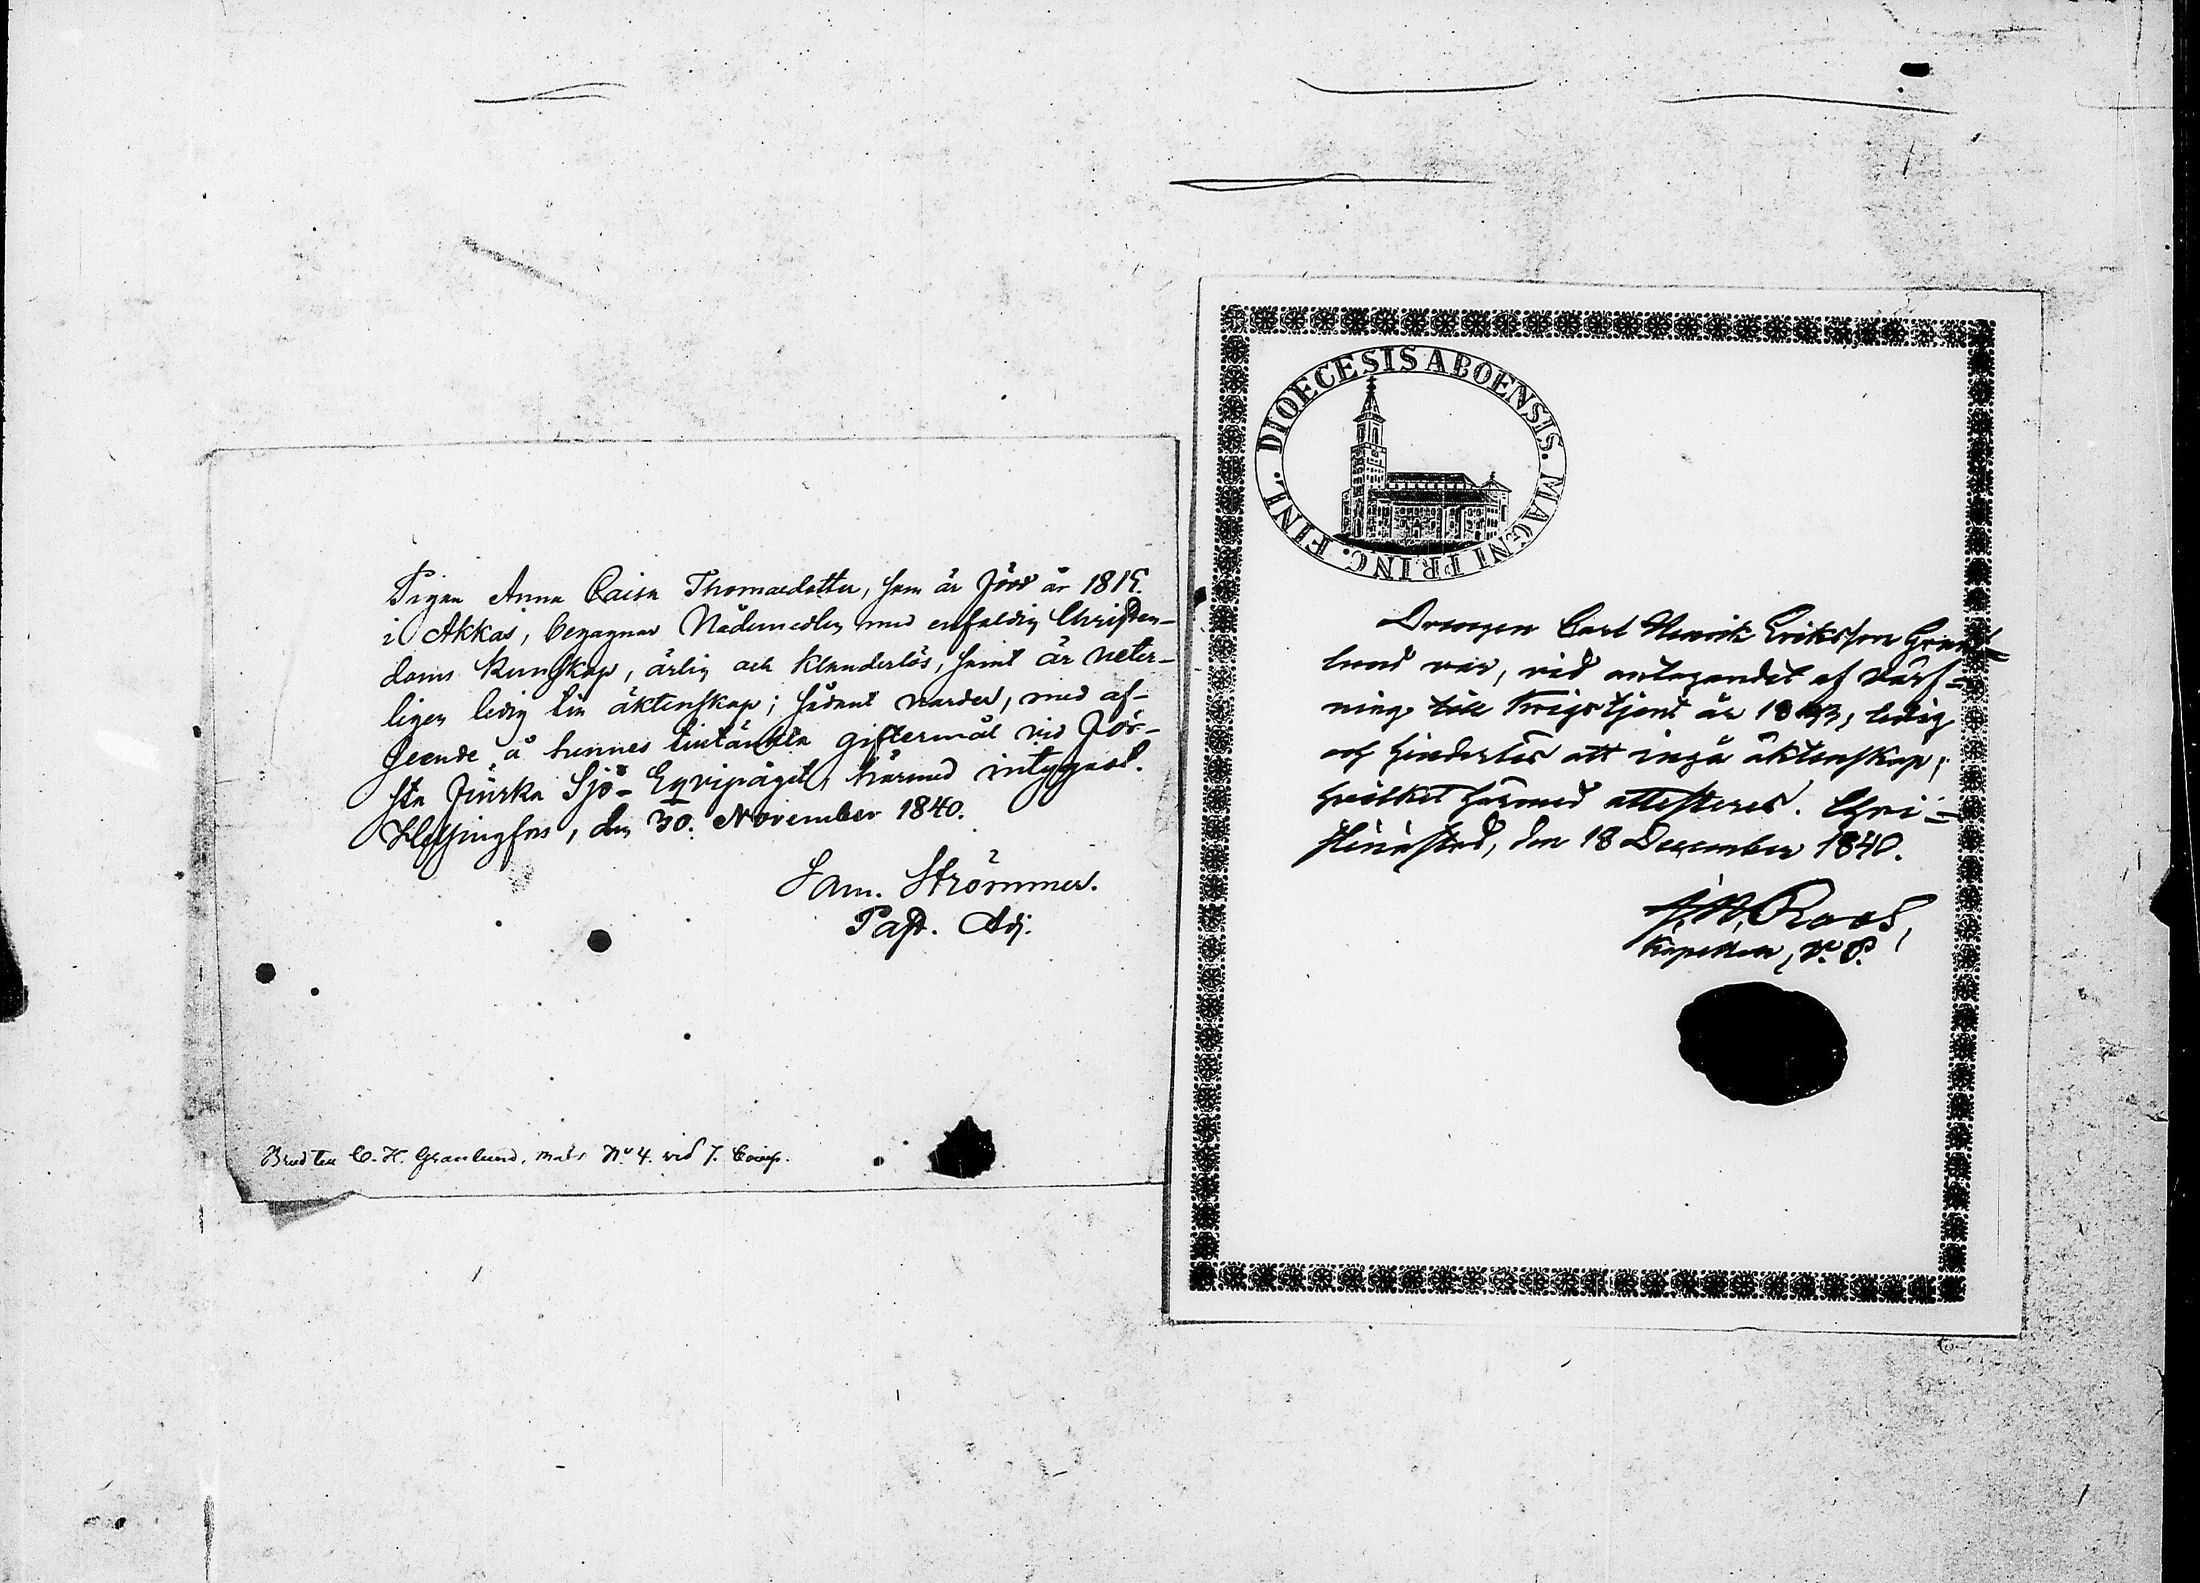 Pigan Anna Caisa Thomasdotter, som är född år 1815.
i Akkas, begagnar Nådemedlen med enfaldig Christen-
doms kunskap, ärlig och klanderlös, samt är veter-
ligen ledig till äktenskap; sådant varder, med af-
seende å hennes tillämnade giftermål vid För-
sta Finska Sjö-Eqvipaget, härmed intygadt.
Helsingfors, den 30. November 1840.
Sam. Strömmer.
Past. Adj.
Brud till C. H. Granlund, mats No 4. vid 7. Comp.
DIOECESIS ABOENSIS. MAGNI PRINC. FINL.
Drengen Carl Henrik Eriksson Gran-
lund var, vid antagandet af värf-
ning till Krigstjenst år, ledig
och hinderlös att ingå äktenskap;
hvilket härmed attesteras. Chri-
stinæstad, den 18 December 1840.
Roos,
Kapellan, V. P.